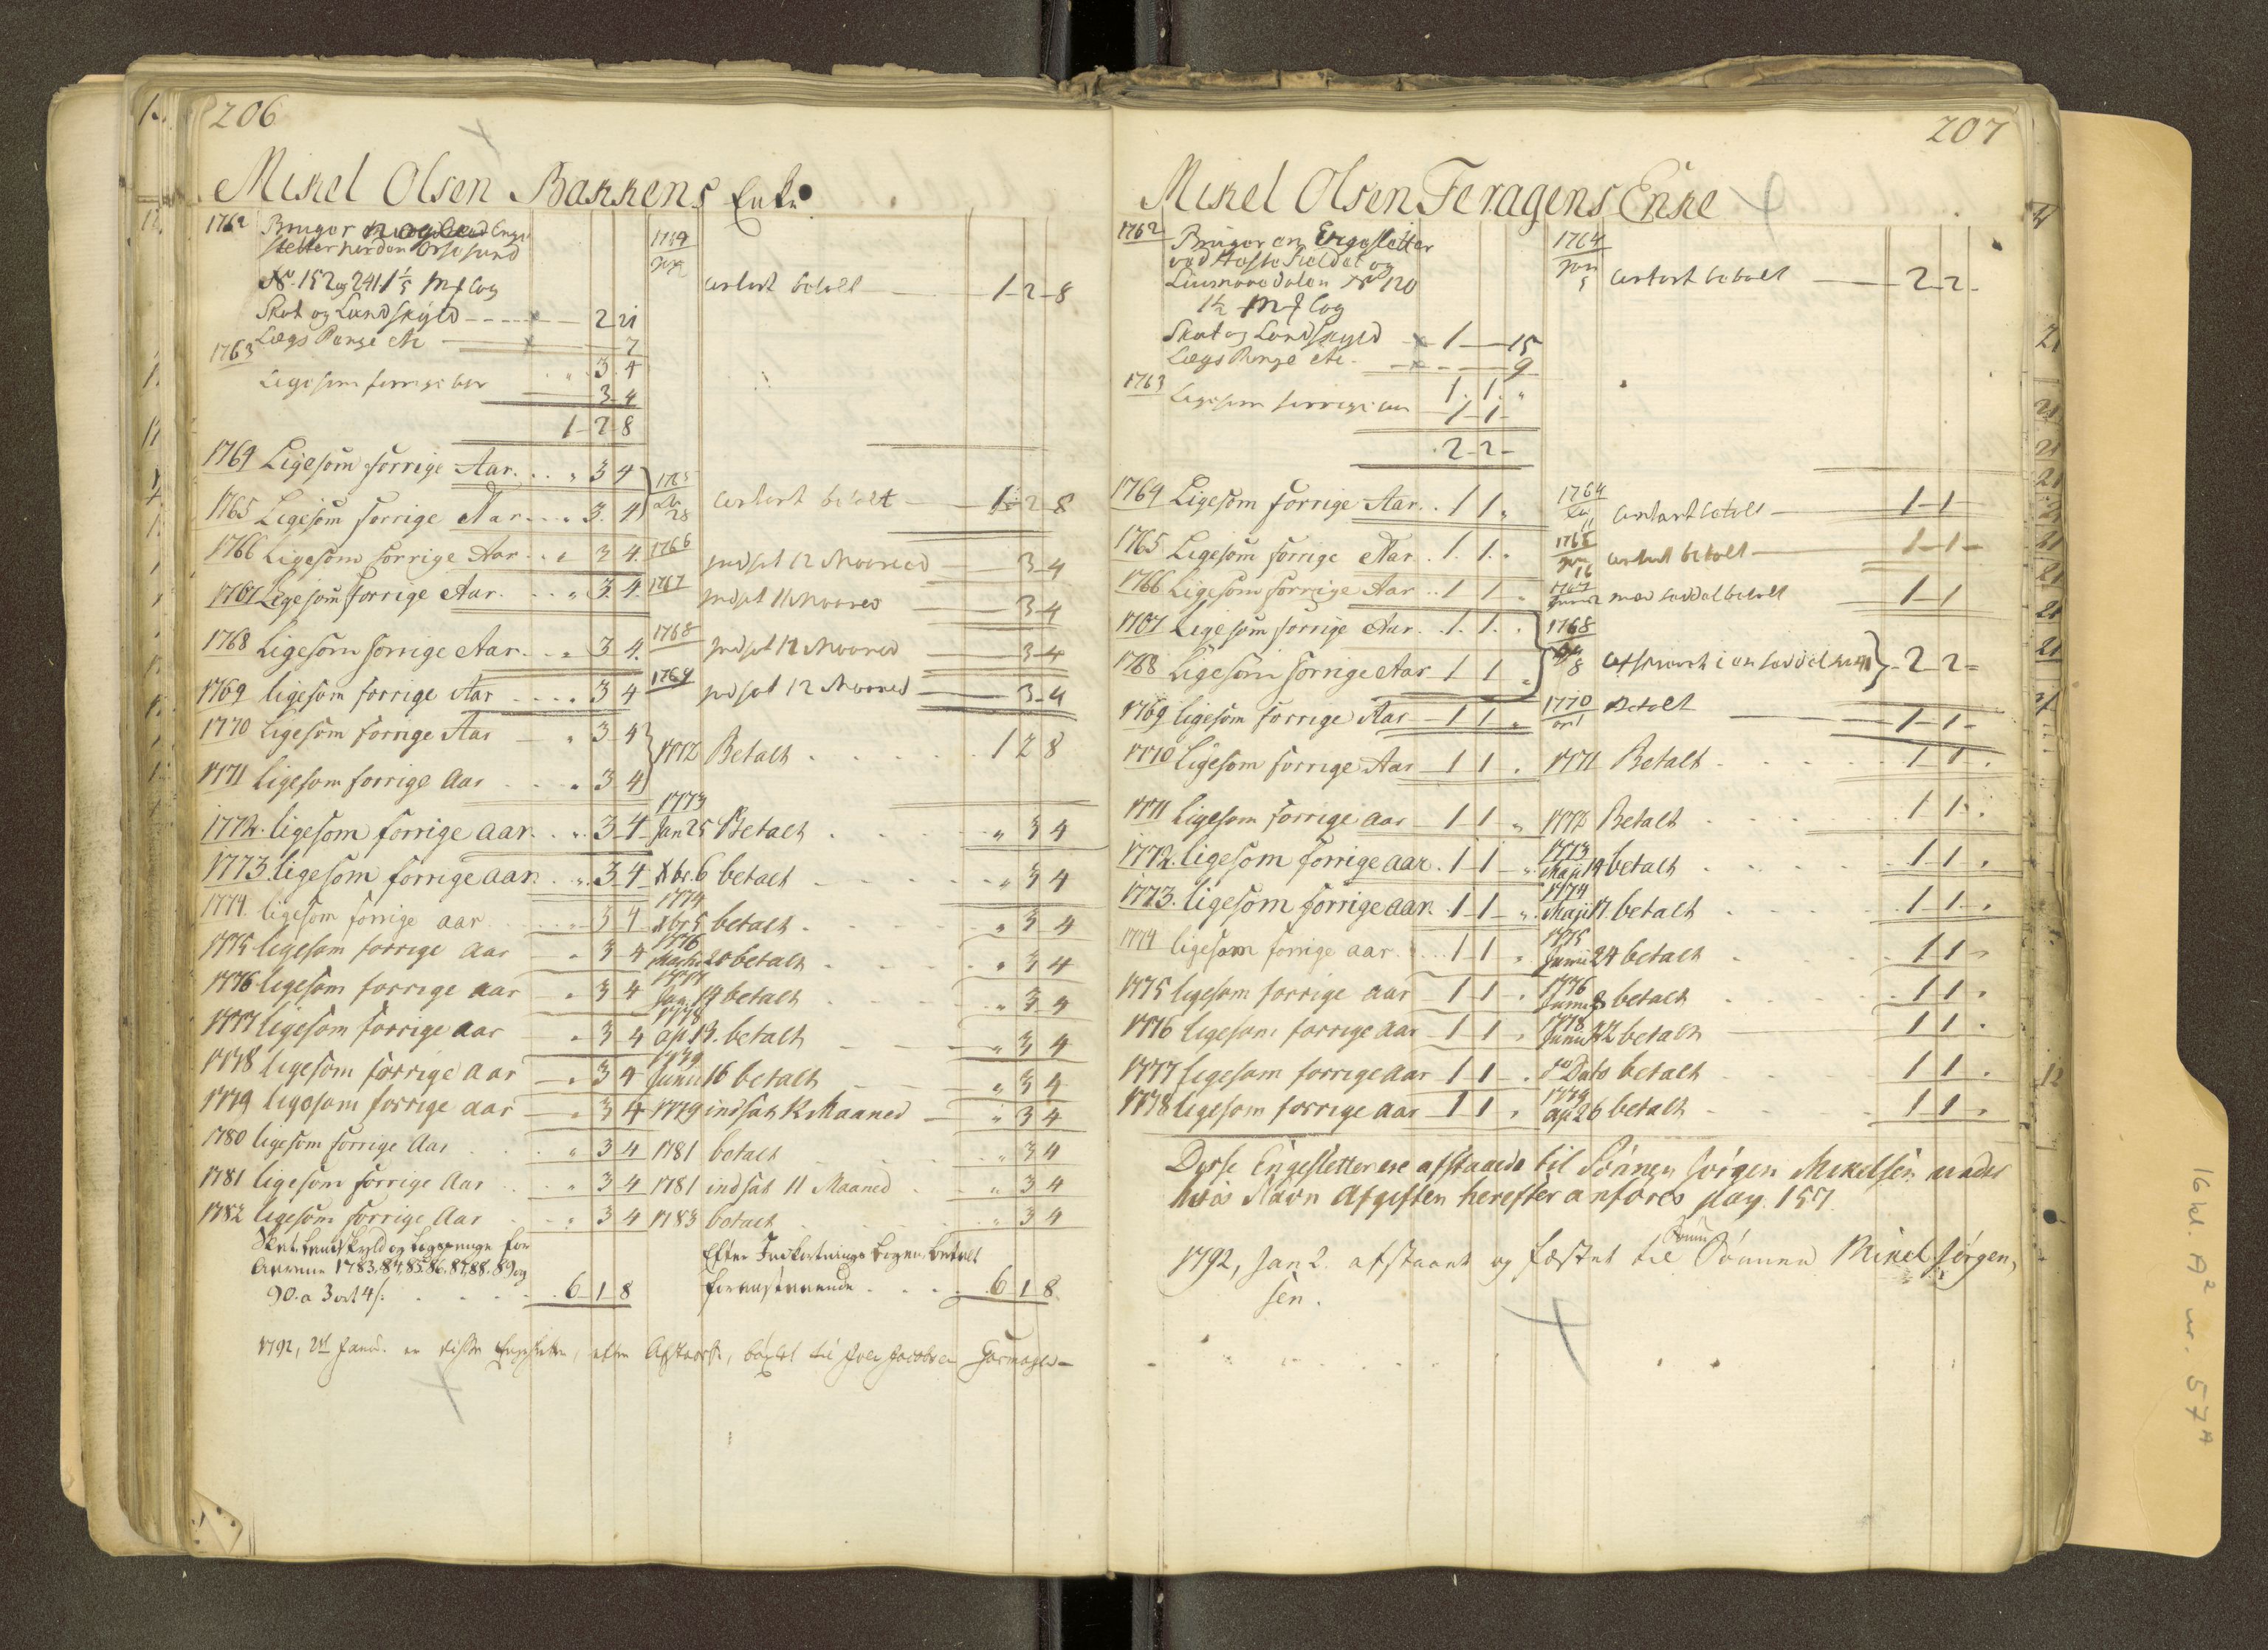 206
Mikel Olsen Bakkens Enke
1762 Bruger Engesletter norden Orsesund
No 152 og 241. 1 1/5 mf log
Skat og Landskyld - - - x - 2 21
Lægs Penge etc - x - 7
3 4
1763 Ligesom forrige aar 3 4
1 - 2 - 8
1764 contant betalt 1 - 2 - 8
1764 Ligesom forrige Aar . . " 3 4
1765 Ligesom forrige Aar . . " 3. 4
1765 28 contant betalt 1 - 2 - 8
1766 Ligesom forrige Aar . . " 3 4. 1766 indsat 12 Maaned 3 - 4
1767 Ligesom forrige Aar. . . " 3 4. 1767 indsat 11 Maaned 3 - 4
1768 Ligesom forrige Aar. . . " 3 4. 1768 indsat 11 Maaned 3 - 4
1769 ligesom forrige Aar . . . . 3 4 1769 indsat 12 Maaned 3 - 4
1770 ligesom forrige Aar " 3 4
1771 ligesom forrige Aar . . " 3 4 1772 Betalt . . . . 1 2 8
1772. ligesom forrige aar. . ". 3 4 1773 Jan 25 Betalt . . . " 3 4
1773. ligesom forrige aar. . ". 3 4 Xbr. 6 betalt . . . " 3 4
1774. ligesom forrige aar . . " 3 4 1774 Xbr 5 betalt . . . " 3 4
1775 ligesom forrige aar " 3 4 1776 20 betalt . . . " 3 4
1776 ligesom forrige aar " 3 4 1777 Jan. 14 betalt . . . " 3 4
1777 ligesom forrige aar " 3 4 1778 ap. 13. betalt - - " 3 4
1778 ligesom forrige aar " 3 4 1779 Junii 16 betalt " 3 4
1779 ligesom forrige aar " 3 4 1779 indsat 12 Maaned " 3 4
1780 ligesom forrige Aar . . " 3 4 1781 betalt . . " 3 4
1781 ligesom forrige Aar . . " 3 4 1781 indsat 11 Maaned . . " 3 4
1782 ligesom forrige Aar . . " 3 4 1783 betalt . . " 3 4
Skat Landskyld og Lægspenge for
Aarene 1783. 84. 85. 86. 87. 88. 89 og
90. a 3 ort 4 s: . . . . . 6 1 8
Efter Indkortnings bogen betalt
foranstaaende . . . . 6 1 8.
1792, 2d Janu. er disse Engesletter, efter Afstaaelse, bøxlet til Iver Jacobsen
207
Mikel Olsen Feragens Enke
1762 Bruger en Engesletter
ved Hestekieldet og
Liusnaredalen No 120
1 1/2 mf log
Skat og Landskyld - x 1 - 15
Lægs Penge etc. - x - - 9
1. 1. "
1763 Ligesom forrige aar 1 - 1 -
2 - 2 -
1764 Jan 5 contant betalt 2 - 2 -
1764 Ligesom forrige Aar . . 1 1 " 1764 11 contant betalt 1 - 1 -
1765 Ligesom forrige Aar . 1. 1. " 1765 16 contant betalt 1 - 1 -
1766 Ligesom forrige Aar . . 1 1 " 1767 Junii 2 med seddel betalt 1 - 1
1767 Ligesom forrige Aar . 1. 1. .
1768 Ligesom forrige Aar 1 1 "
1768 8 i en seddel 2 - 2 -
1769 ligesom forrige Aar 1 1 " 1770 Betalt 1 - 1 -
1770 ligesom forrige Aar 1 1 . 1771 Betalt . . . 1 1 .
1771 ligesom forrige aar 1 1 " 1772 Betalt . . . 1 1 .
1772. ligesom forrige aar . 1 1 ". 1773 Maji 19 betalt . . . 1 1 .
1773. ligesom forrige aar. 1 1 ". 1774 Maji 17. betalt . . . 1 1 .
1774 ligesom forrige aar . . . 1 1 " 1775 Junii 24 betalt . . . 1 1 "
1775 ligesom forrige aar 1 1 . 1776 Junii 8 betalt . . . 1 1 .
1776 ligesom forrige aar 1 1 " 1778 Junii 12 betalt 1 1 .
1777 ligesom forrige aar 1 1 . do Dato betalt . . . 1 1 .
1778 ligesom forrige aar 1 1 " 1779 Ap. 26 betalt . . . 1 1 "
Disse Engesletter ere afstaaede til Sönnen Jörgen Mikelsen under
hvis Navn Afgiften herefter anföres pag. 157.
1792, Jan 2. afstaaet og fæstet til Sönnen Mikel Jörgen,
sen.
16 kl. A2 nr. 57A